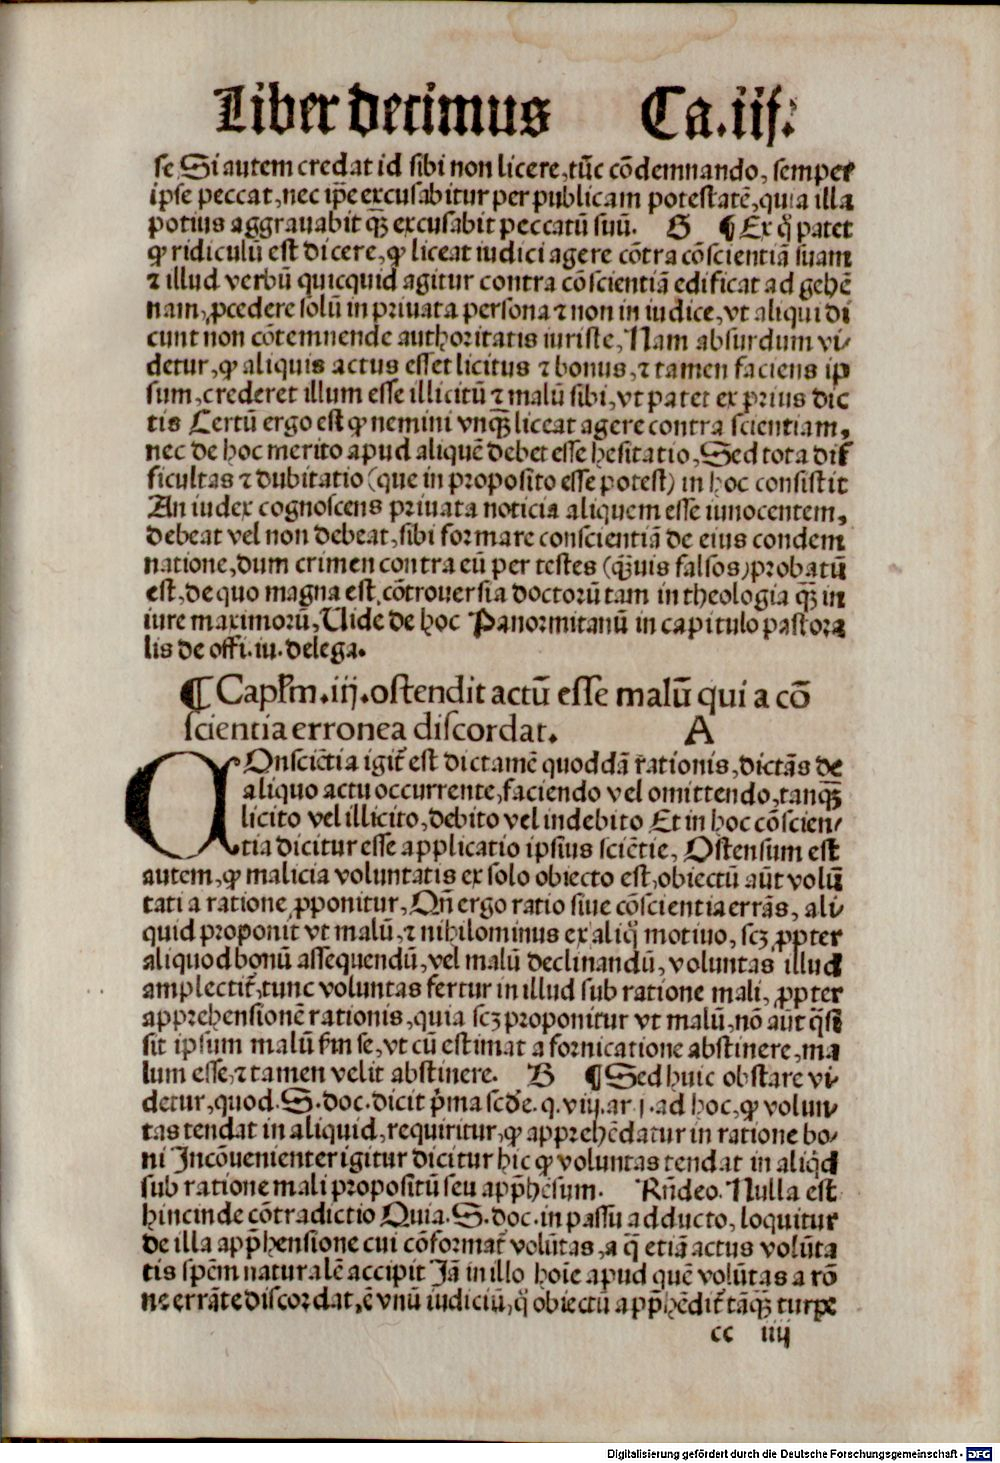 Liber decimus Ca.iij.
se, Si autem credat id sibi non licere, tūc cōdemnando, semper
ipse peccat, nec ip̄e excusabitur per publicam potestatē, quia illa
potius aggrauabit q̄ꝫ excusabit peccatū suū. G ¶ Ex q̊ patet
ꝙ ridiculū est dicere, ꝙ liceat iudici agere cōtra cōscientiā suam
⁊ illud verbū quicquid agitur contra cōscientiā edificat ad gehē
nam, ꝓcedere solū in priuata persona ⁊ non in iudice, vt aliqui di
cunt non cōtemnende authoritatis iuriste, Nam absurdum vi⸗
detur, ꝙ aliquis actus esset licitus ⁊ bonus, ⁊ tamen faciens ip
sum, crederet illum esse illicitū ⁊ malū sibi, vt patet ex prius dic
tis Certū ergo est ꝙ nemini vnq̄ꝫ liceat agere contra scientiam,
nec de hoc merito apud aliquē debet esse hesitatio, Sed tota dif
ficultas ⁊ dubitatio (que in proposito esse potest) in hoc consistit
An iudex cognoscens priuata noticia aliquem esse innocentem,
debeat vel non debeat, sibi formare conscientiā de eius condem
natione, dum crimen contra eū per testes (q̄ꝫuis falsos) probatū
est, de quo magna est cōtrouersia doctorū tam in theologia q̄ꝫ in
iure maximorū, Uide de hoc Panormitanū in capitulo pastora
lis de offi. iu. delega.
¶ Capl̄m .iij. ostendit actū esse malū qui a cō
scientia erronea discordat. A
COnsciētia igit̄ est dictamē quoddā r̄ationis, dictās de
aliquo actu occurrente, faciendo vel omittendo, tanq̄ꝫ
licito vel illicito, debito vel indebito Et in hoc cōscien⸗
tia dicitur esse applicatio ipsius sciētie, Ostensum est
autem, ꝙ malicia voluntatis ex solo obiecto est, obiectū aūt volū
tati a ratione ꝓponitur, Qn̄ ergo ratio siue cōscientia errās, ali⸗
quid proponit vt malū, ⁊ nihilominus ex aliq̊ motiuo, scꝫ ꝓpter
aliquod bonū assequendū, vel malū declinandū, voluntas illud
amplectit̄, tunc voluntas fertur in illud sub ratione mali, ꝓpter
apprehensionē rationis, quia scꝫ proponitur vt malū, nō aūt q̄si
sit ipsum malū fm se, vt cū estimat a fornicatione abstinere, ma
lum esse, ⁊ tamen velit abstinere. B ¶ Sed huic obstare vi⸗
detur, quod .S. doc. dicit p̄ma scd̄e. q. viij. ar. j. ad hoc, ꝙ volun⸗
tas tendat in aliquid, requiritur, ꝙ apprehēdatur in ratione bo⸗
ni Incōuenienter igitur dicitur hic ꝙ voluntas tendat in aliq̇d
sub ratione mali propositū seu app̄hēsum. Rn̄deo. Nulla est
hincinde cōtradictio Quia .S. doc. in passu adducto, loquitur
de illa app̄hensione cui cōformat̄ volūtas, a q̄ etiā actus volūta
tis spēm naturalē accipit Jā in illo hoīe apud quē volūtas a rō
ne errāte discordat, ē vnū iudiciū, q̊ obiectū app̄hēdit̄ tāq̄ꝫ turpe
cc iiij
Digitalisierung gefördert durch die Deutsche Forschungsgemeinschaft - DFG